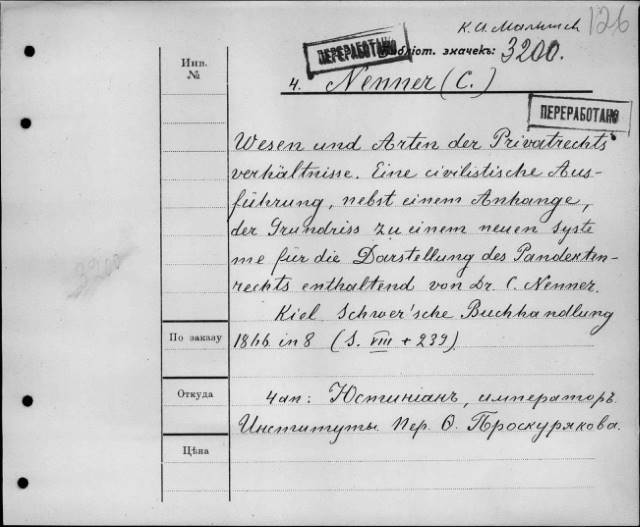 К. И. Малышев 126
ПЕРЕРАБОТАНО
Библіот. значекъ: 3200.
Инв.
№
Ч. Nenner (C.)
ПЕРЕРАБОТАНО
Wesen und Arten der Privatrechts
verhältnisse. Eine civilistische Aus-
führung, nebst einem Anhange,
der Grundriss zu einem neuen Syste
me für die Darstellung des Pandekten-
rechts enthaltend von Dr. C. Nenner.
3200
Kiel Schwer'sche Buchhandlung
По заказу
1866 in 8 (S. VIII + 239)
Откуда
Чап: Юстиніанъ, императоръ
Институты. Пер. Ѳ. Проскурякова.
Цѣна